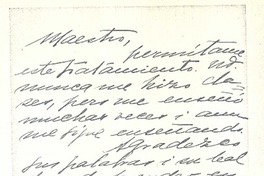 Maestro,
permítame
este tratamiento. Ud.
nunca me hizo cla-
ses, pero me enseñó
muchas veces i aun
me sigue enseñando.
Agradezco
sus palabras i su leal